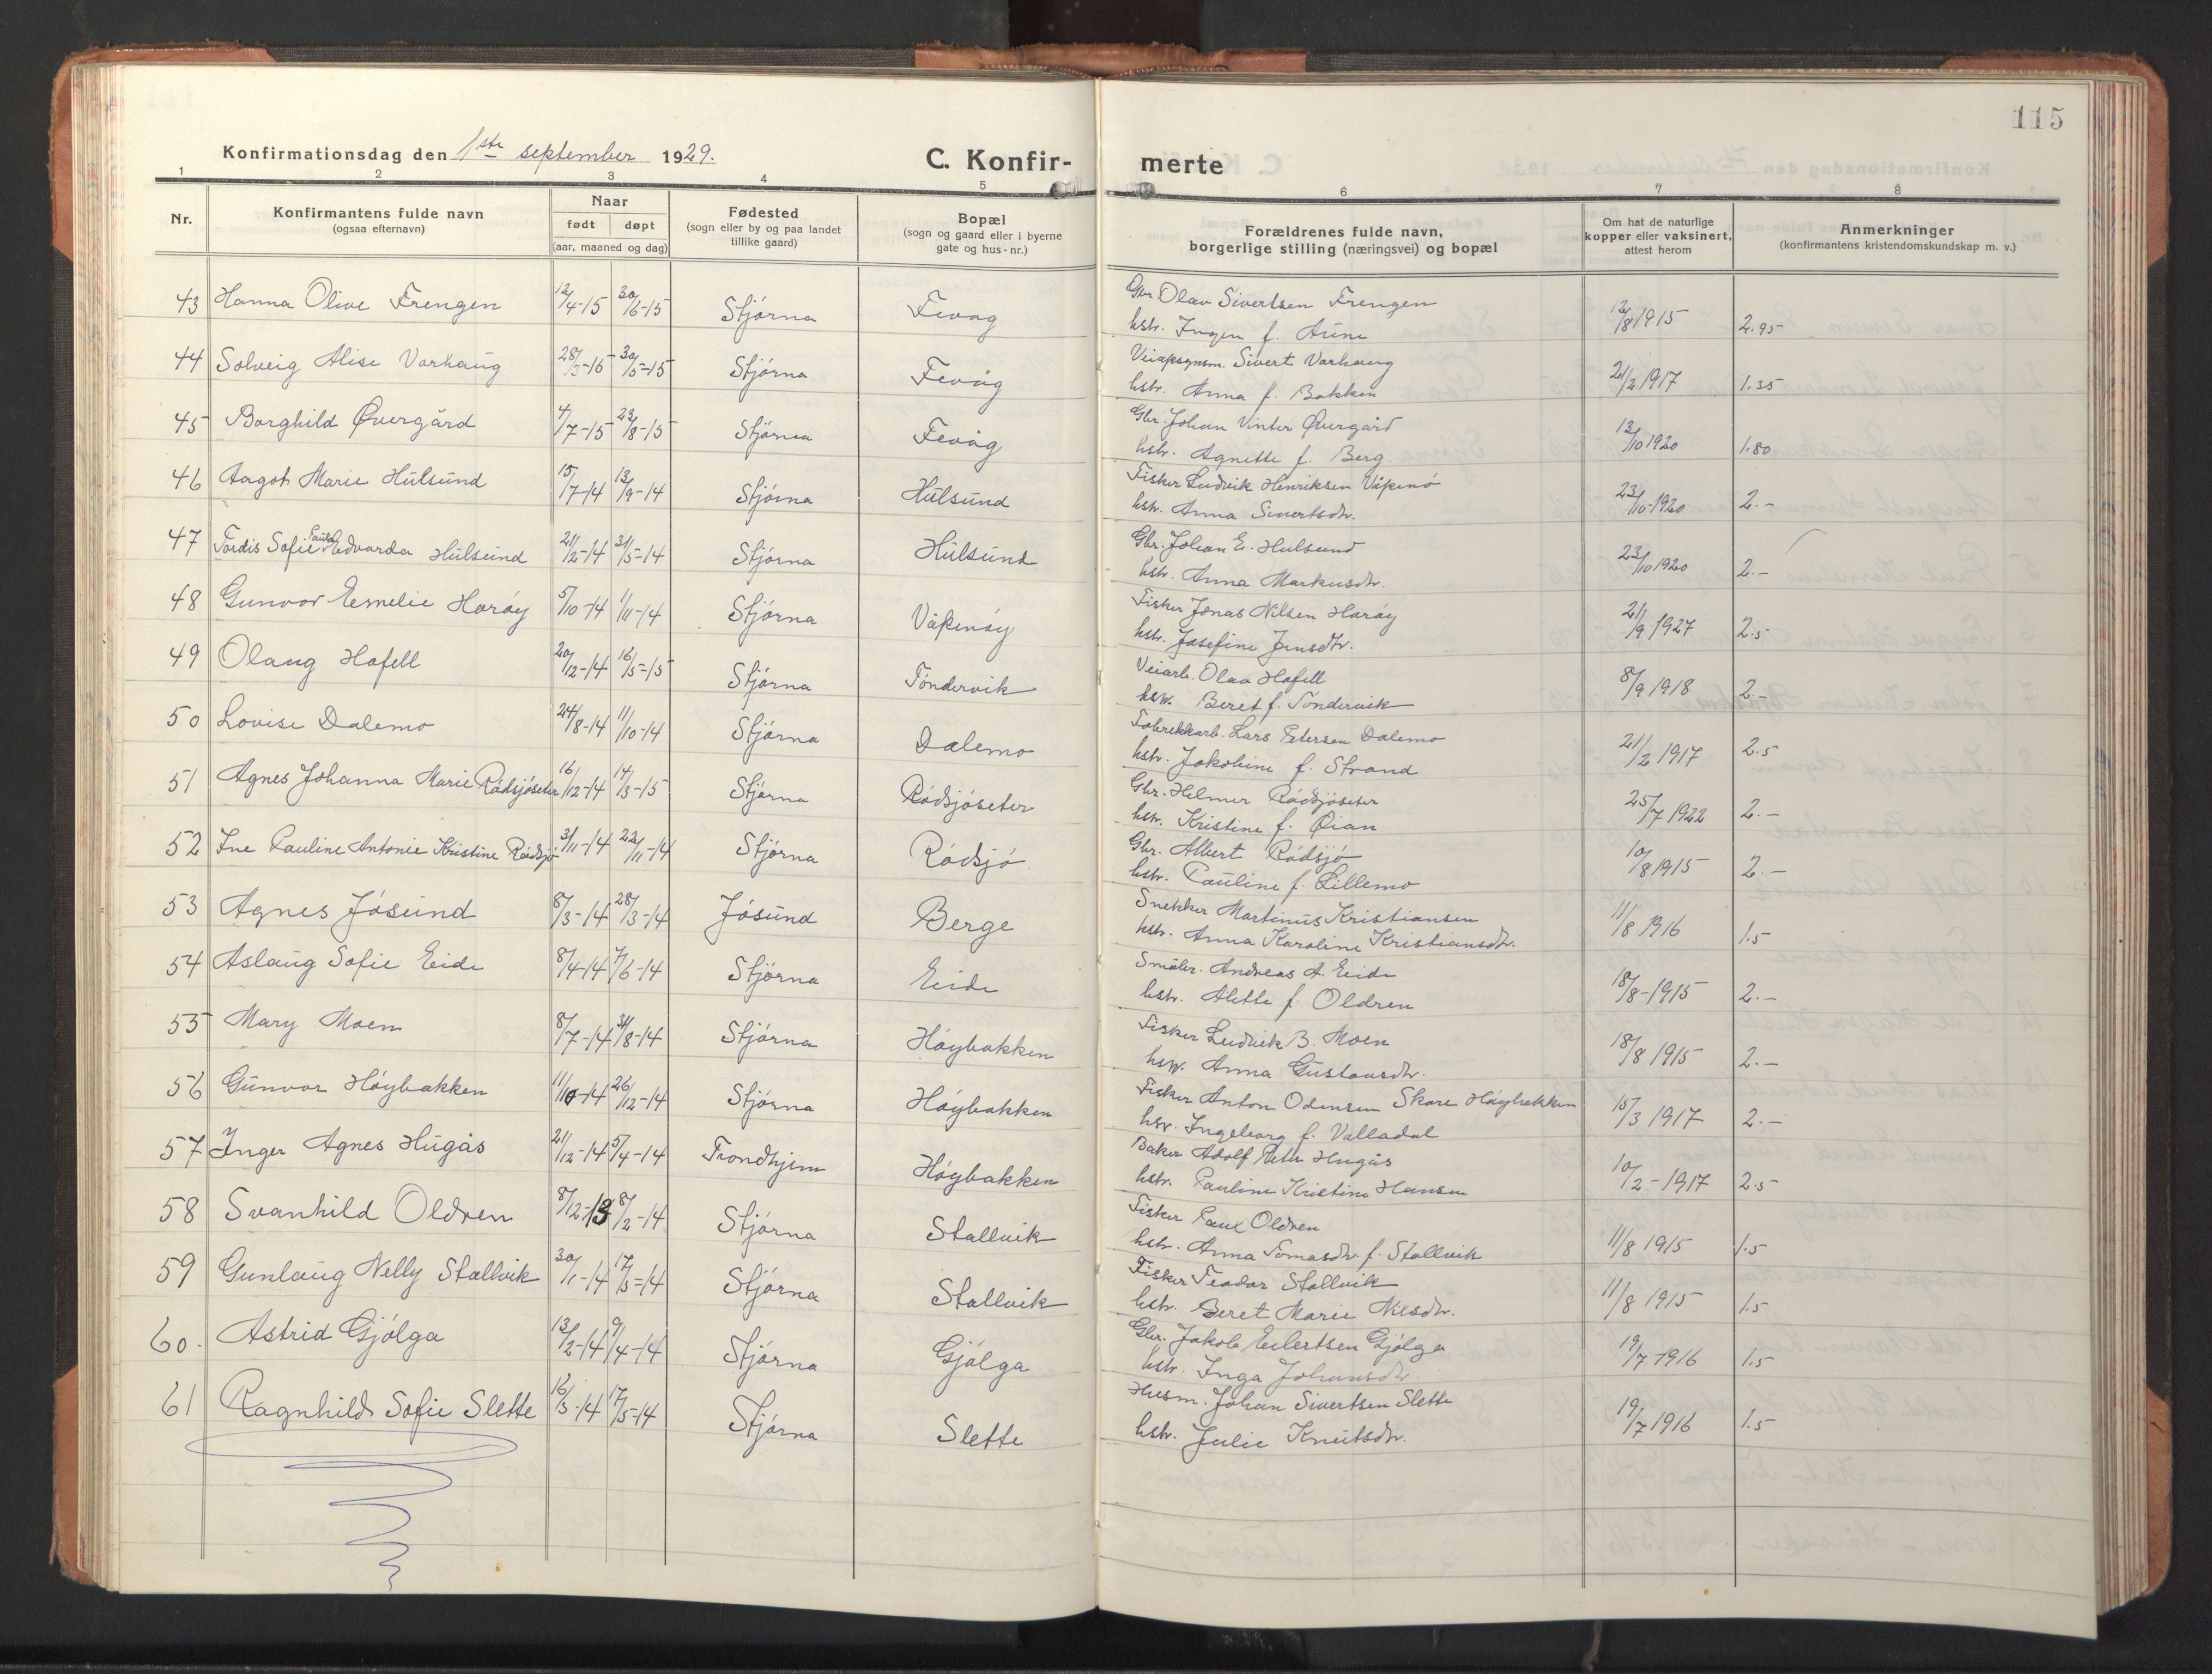 115
Konfirmationsdag den 1ste september 1929.
C. Konfir-
merte
1 2 3 4 5 6 7 8
Nr.
Konfirmantens fulde navn
(ogsaa efternavn)
Naar
født døpt
(aar, maaned og dag)
Fødested
(sogn eller by og paa landet
tillike gaard)
Bopæl
(sogn og gaard eller i byerne
gate og hus-nr.)
Forældrenes fulde navn,
borgerlige stilling (næringsvei) og bopæl
Om hat de naturlige
kopper eller vaksinert,
attest herom
Anmerkninger
(konfirmantens kristendomskundskap m. v.)
43 Hanna Olive Frengen 12/4-15 30/6-15 Stjørna Fevåg
Gbr. Olav Sivertsen Frengen
hstr. Ingen f. Aune 12/8 1915 2.95
44 Solveig Alise Varhaug 28/3-15 30/5-15 Stjørna Fevåg
Sivert Varhaug
hstr. Anna f. Bakken 21/2 1917 1.35
45 Borghild Øvergård 4/7-15 23/8-15 Stjørna Fevåg
Gbr. Johan Vinter Øvergård
hstr. Agnette f. Berg 13/10 1920 1.80
46 Aagot Marie Hulsund 15/7-14 13/9-14 Stjørna Hulsund
Fisker Ludvik Henriksen Våpenø
hstr. Anna Sivertsdtr. 23/10-1920 2.-
47 Tordis Sofie Paula Edvarda Hulsund 21/2-14 31/5-14 Stjørna Hulsund
Gbr. Johan E. Hulsund
hstr. Anna Markusdtr. 23/10 1920 2.-
48 Gunvor Emelie Harøy 5/10-14 1/11-14 Stjørna Våpenøy
Fisker Jonas Nilsen Harøy
hstr. Josefine Jensdtr. 21/9-1927 2.5
49 Olaug Hafell 20/12-14 16/5-15 Stjørna Tøndervik
Veiarb. Olav Hafell
hstr. Beret f. Tøndervik 8/9 1918 2.-
50 Lovise Dalemo 24/8-14 11/10-14 Stjørna Dalemo
Fabrikkarb. Lars Petersen Dalemo
hstr. Jakobine f. Strand 21/2 1917 2.5
51 Agnes Johanna Marie Rødsjøseter 16/12-14 14/3-15 Stjørna Rødsjøseter
Gbr. Helmer Rødsjøseter
hstr. Kristine f. Øian 25/7 1922 2.-
52 Ine Pauline Antonie Kristine Rødsjø 3/11-14 22/11-14 Stjørna Rødsjø
Gbr. Albert Rødsjø
hstr. Pauline f. Lillemo 10/8 1915 2.-
53 Agnes Jøsund 8/3-14 28/3-14 Jøsund Berge
Snekker Martinus Kristiansen
hstr. Anna Karoline Kristiansdtr. 11/8 1916 1.5
54 Aslaug Sofie Eide 8/4-14 7/6-14 Stjørna Eide
Småbr. Andreas A. Eide
hstr. Alette f. Oldren 18/8-1915 2.-
55 Mary Moen 8/7-14 31/8-14 Stjørna Høybakken
Fisker Ludvik B. Moen
hstr. Anna Gustavsdtr. 18/8 1915 2.-
56 Gunvor Høybakken 11/10-14 26/12-14 Stjørna Høybakken
Fisker Anton Odensen Skare Høybakken
hstr. Ingeborg f. Valladal 15/3 1917 2.-
57 Inger Agnes Hugås 21/12-14 5/4-14 Trondhjem Høybakken
Baker Adolf Peter Hugås
hstr. Pauline Kristine Hansen 10/2-1917 2.5
58 Svanhild Oldren 8/12-13 8/2-14 Stjørna Stallvik
Fisker Paul Oldren
hstr. Anna Tomasdtr. f. Stallvik 11/8 1915 1.5
59 Gunlaug Nelly Stallvik 30/1-14 17/5-14 Stjørna Stallvik
Fisker Teodor Stallvik
hstr. Beret Marie Nilsdtr. 11/8 1915 1.5
60. Astrid Gjølga 13/2-14 9/4-14 Stjørna Gjølga
Gbr. Jakob Eilertsen Gjølga
hstr. Inga Johansdtr. 19/7-1916 1.5
61 Ragnhild Sofie Slette 16/3-14 17/5-14 Stjørna Slette
Husm. Johan Sivertsen Slette
hstr. Julie Knutsdtr. 19/7 1916 1.5